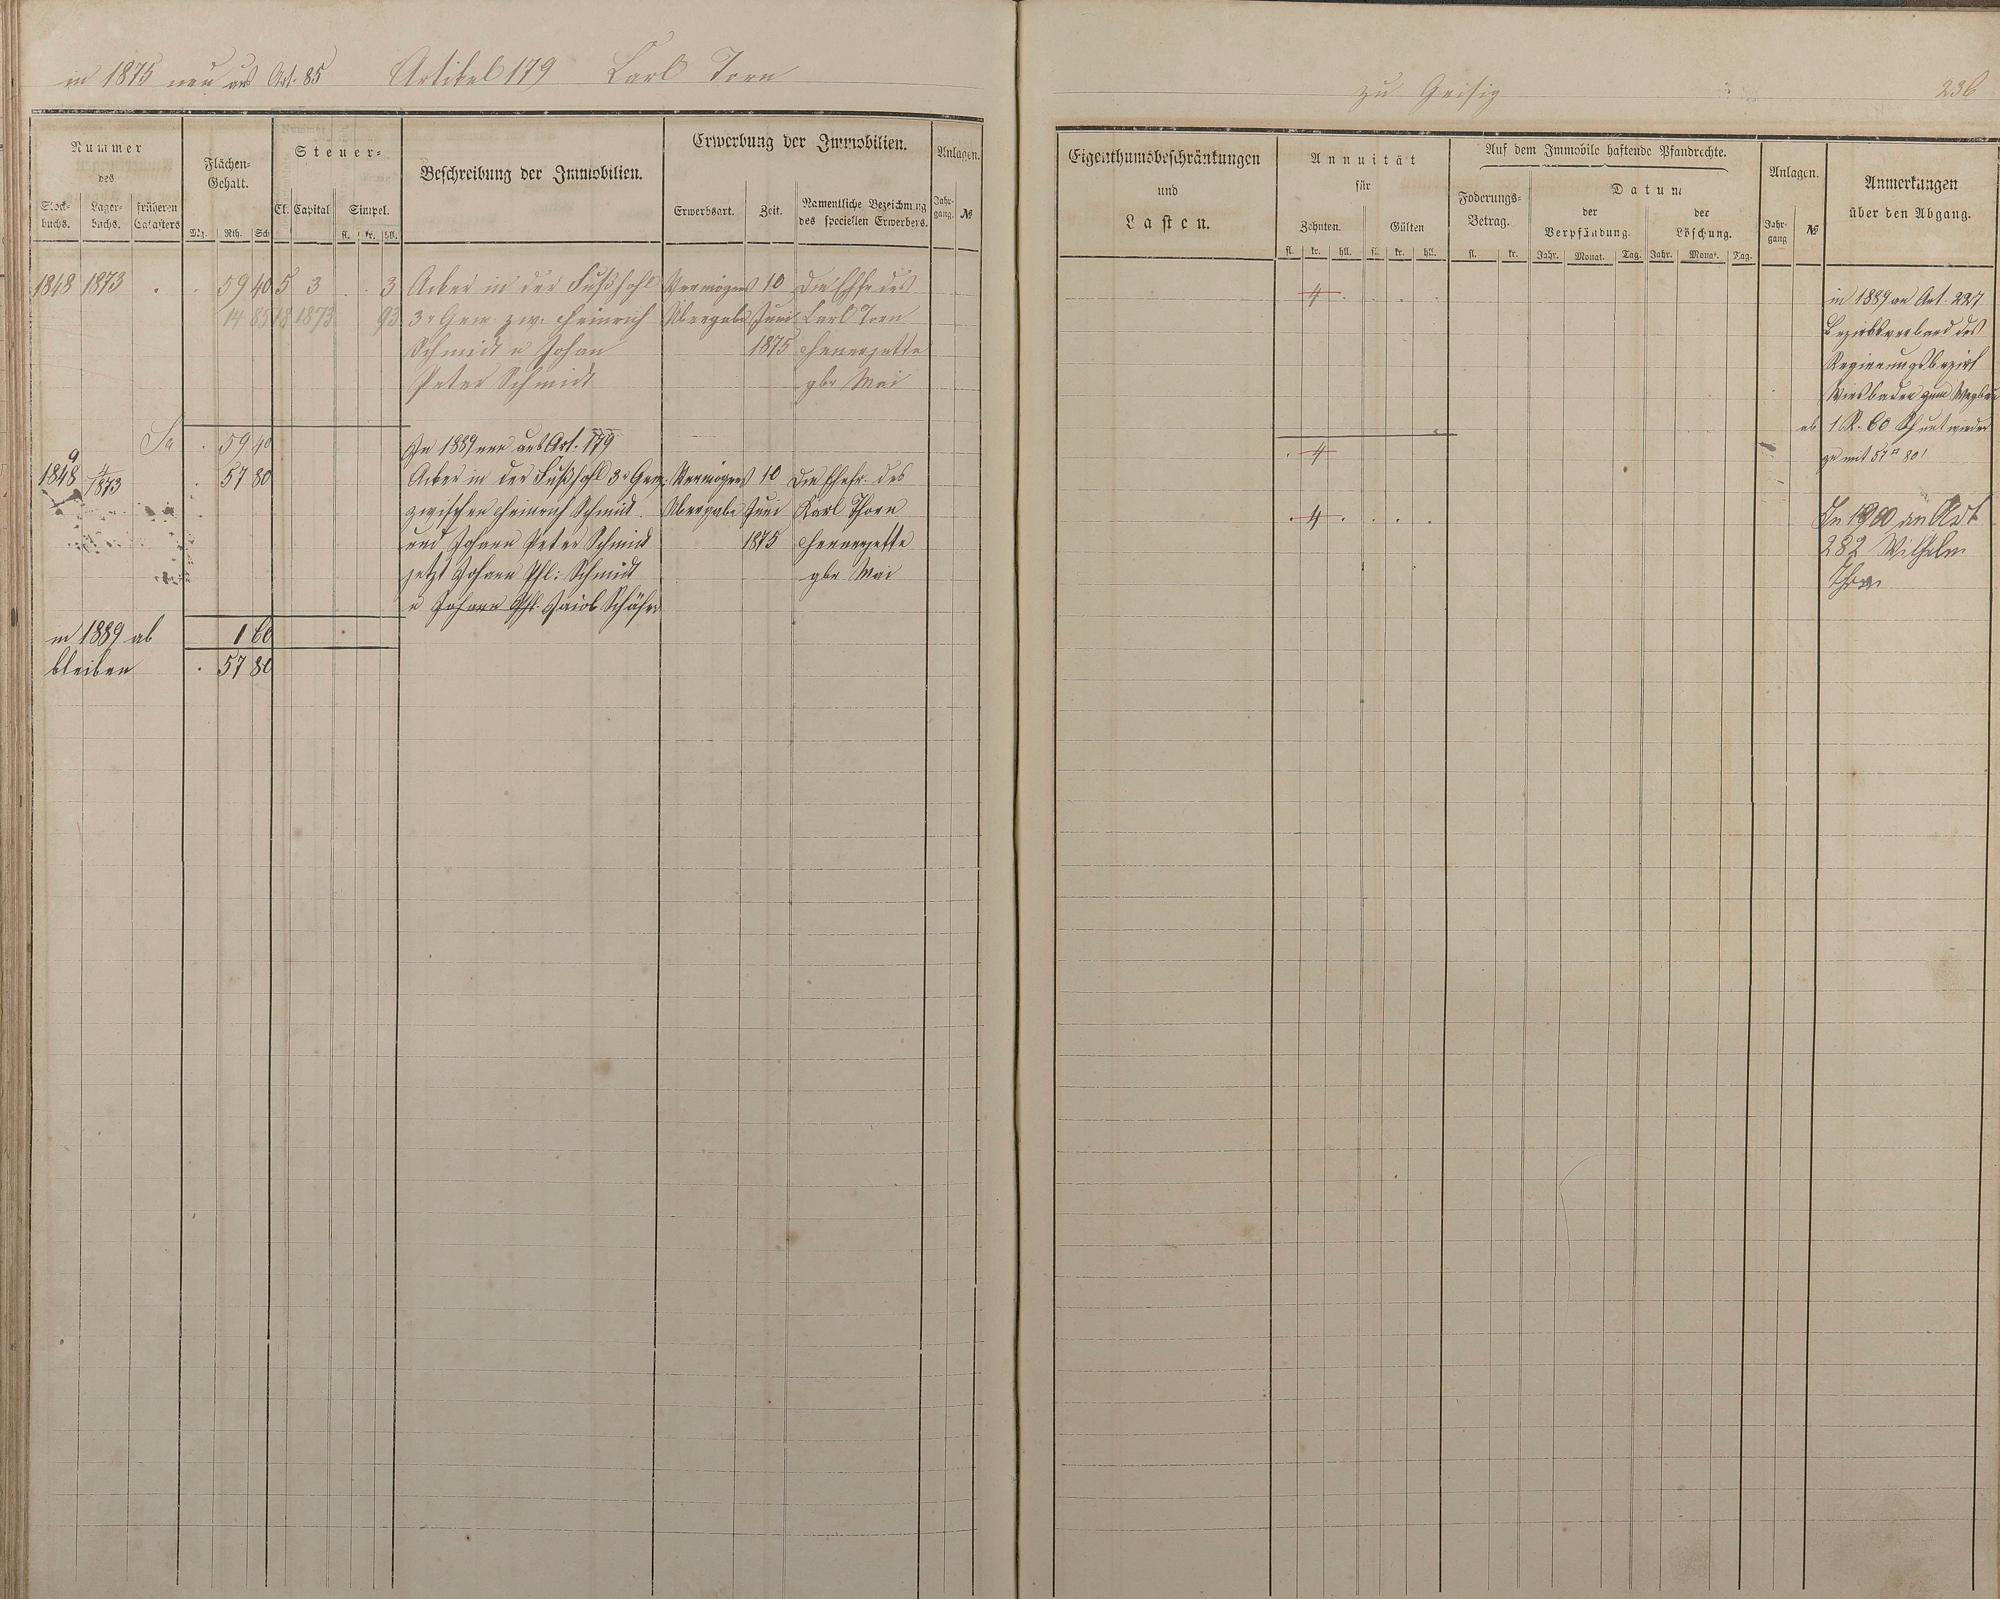 in 1875 neu aus Art. 85 Artikel 179 Carl Torn
zu Geisig 236
Nummer
des
Stock-
buchs.
Lager-
buchs.
früheren
Catasters
Flächen-
Gehalt.
Mg. Rth. Sch
Steuer-
Cl. Capital Simpel.
fl. kr. hll.
Beschreibung der Immobilien.
Erwerbung der Immobilien.
Erwerbsart. Zeit. Namentliche Bezeichnung
des speciellen Erwerbers.
Anlagen.
Jahr-
gang. №
Eigenthumsbeschränkungen
und
Lasten.
Annuität
für
Zehnten. Gülten
fl. kr. hll. fl. kr. hll.
Auf dem Immobile haftende Pfandrechte.
Foderungs-
Betrag.
fl. kr.
Datum
der
Verpfändung.
der
Löschung.
Jahr. Monat. Tag. Jahr. Monat. Tag.
Anlagen.
Jahr-
gang №
Anmerkungen
über den Abgang.
1848 1873 . . 59 40 5 3 . . 3 Acker in der Fußhohl Vermögens 10 Die Ehfr des
14 85 18 1873 93 3r Gew. zw. Heinrich Übergabe Juni Carl Torn
Schmidt u Johan 1875 Henerzette
Peter Schmidt gbr Mai
4
in 1889 an Art. 227
Bezirksverband des
Regierungsbezirk
Wiesbaden zum Wegbau
ab 1 R. 60 Sch und wieder
zu mit 57 R 80'
Sa . 59 40
4
In 1889 neu aus Art. 179
1848 9 4/1873 . 57 80 Acker in der Fußhohl 3r Gew. Vermögens 10 Die Ehefr. des
zwischen Heinrich Schmidt Übergabe Juni Karl Thorn
und Johann Peter Schmidt 1875 Henerzette
jetzt Johann Phl: Schmidt gbr Mai
u Johann Phl. Jacob Schäfer
. 4 . . . .
In 1900 an Art
282 Wilhelm
Thorn
in 1889 ab 1 60
bleiben . 57 80